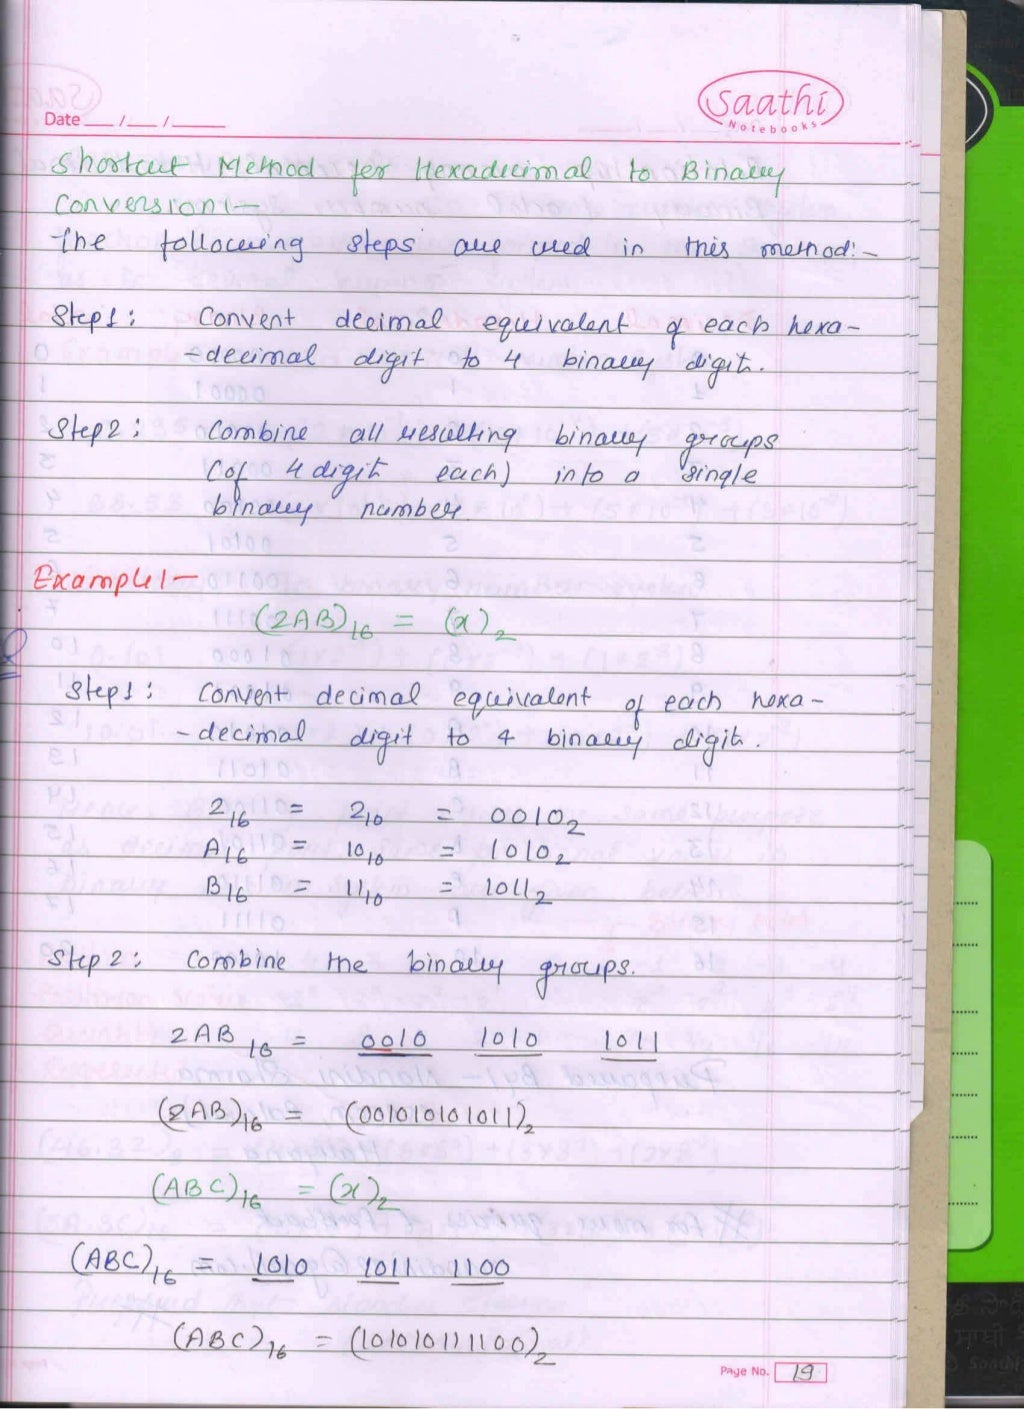 Saathi
Notebooks
Date __/__/____
Shortcut Method for Hexadecimal to Binary
Conversion:-
The following steps are used in this method:-
Step1: Convert decimal equivalent of each hexa-
-decimal digit to 4 binary digit.
Step2: Combine all resulting binary groups
(of 4 digit each) into a single
binary number.
Example:-
(2AB)₁₆ = (x)₂
Step1: Convert decimal equivalent of each hexa-
-decimal digit to 4 binary digit.
2₁₆ = 2₁₀ = 0010₂
A₁₆ = 10₁₀ = 1010₂
B₁₆ = 11₁₀ = 1011₂
Step2: Combine the binary groups.
2AB₁₆ = 0010 1010 1011
(2AB)₁₆ = (001010101011)₂
(ABC)₁₆ = (x)₂
(ABC)₁₆ = 1010 1011 1100
(ABC)₁₆ = (101010111100)₂
Page No. 19